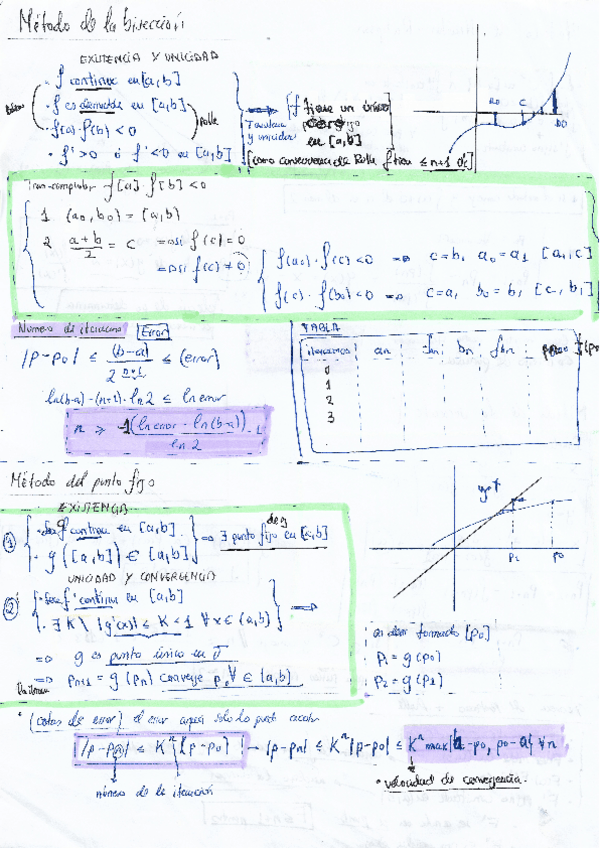 Método de la bisección
EXISTENCIA Y UNICIDAD
· f continua en [a,b]
· f es derivable en [a,b]
· f(a)·f(b) < 0
· f' > 0 ó f' < 0 en [a,b]
Rolle
f tiene un único
en [a,b]
[como consecuencia de Rolle f tiene ≤ n+1
C
b0
comprobar f[a]·f[b] < 0
1 (a0, b0) = (a,b)
2 a+b/2 = c ⇒ si f(c) = 0
⇒ si f(c) ≠ 0
f(a0)·f(c) < 0 ⇒ c = b1 a0 = a1 [a1, c]
f(c)·f(b0) < 0 ⇒ c = a1 b0 = b1 [c, b1]
Número de iteraciones Error
|p-p0| ≤ (b-a)/2^{n+1} ≤ (error)
ln(b-a)-(n+1)·ln 2 ≤ ln error
n ≥ -1(ln error - ln(b-a))/ln 2 - 1
TABLA
iteraciones an fan bn fbn
0
1
2
3
Método del punto fijo
EXISTENCIA
1 · Sea g continua en [a,b]
· g([a,b]) ∈ [a,b]
⇒ ∃ punto fijo en [a,b]
de g
UNICIDAD Y CONVERGENCIA
2 · Sea f' continua en [a,b]
· ∃ K \ |g'(x)| ≤ K < 1 ∀ x ∈ (a,b)
⇒ g es punto único en
⇒ pn+1 = g(pn) converge p ∀ ∈ (a,b)
p2 p0
[p0]
p1 = g(p0)
p2 = g(p1)
* (cotas de error) el error aquí solo lo puedo acotar
|p-pn| ≤ K^n |p-p0| → |p-pn| ≤ K^n |p-p0| ≤ K^n max|b-p0, p0-a| ∀n
número de la iteración
* velocidad de convergencia.